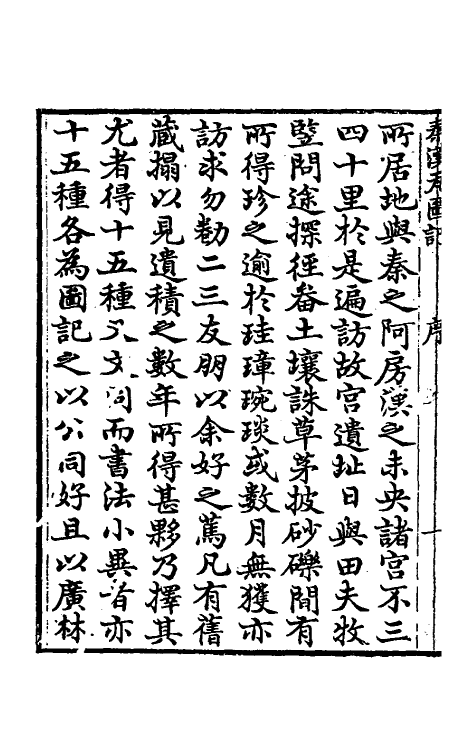 秦漢瓦圖記 序 一
所居地與秦之阿房漢之未央諸宮不三
四十里於是遍訪故宮遺址日與田夫牧
豎問途探徑畚土壤誅草茅披砂礫間有
所得珍之逾於珪璋琬琰或數月無獲亦
訪求勿勸二三友朋以余好之篤凡有舊
藏搨以見遺積之數年所得甚夥乃擇其
尤者得十五種又文同而書法小異者亦
十五種各為圖記之以公同好且以廣林